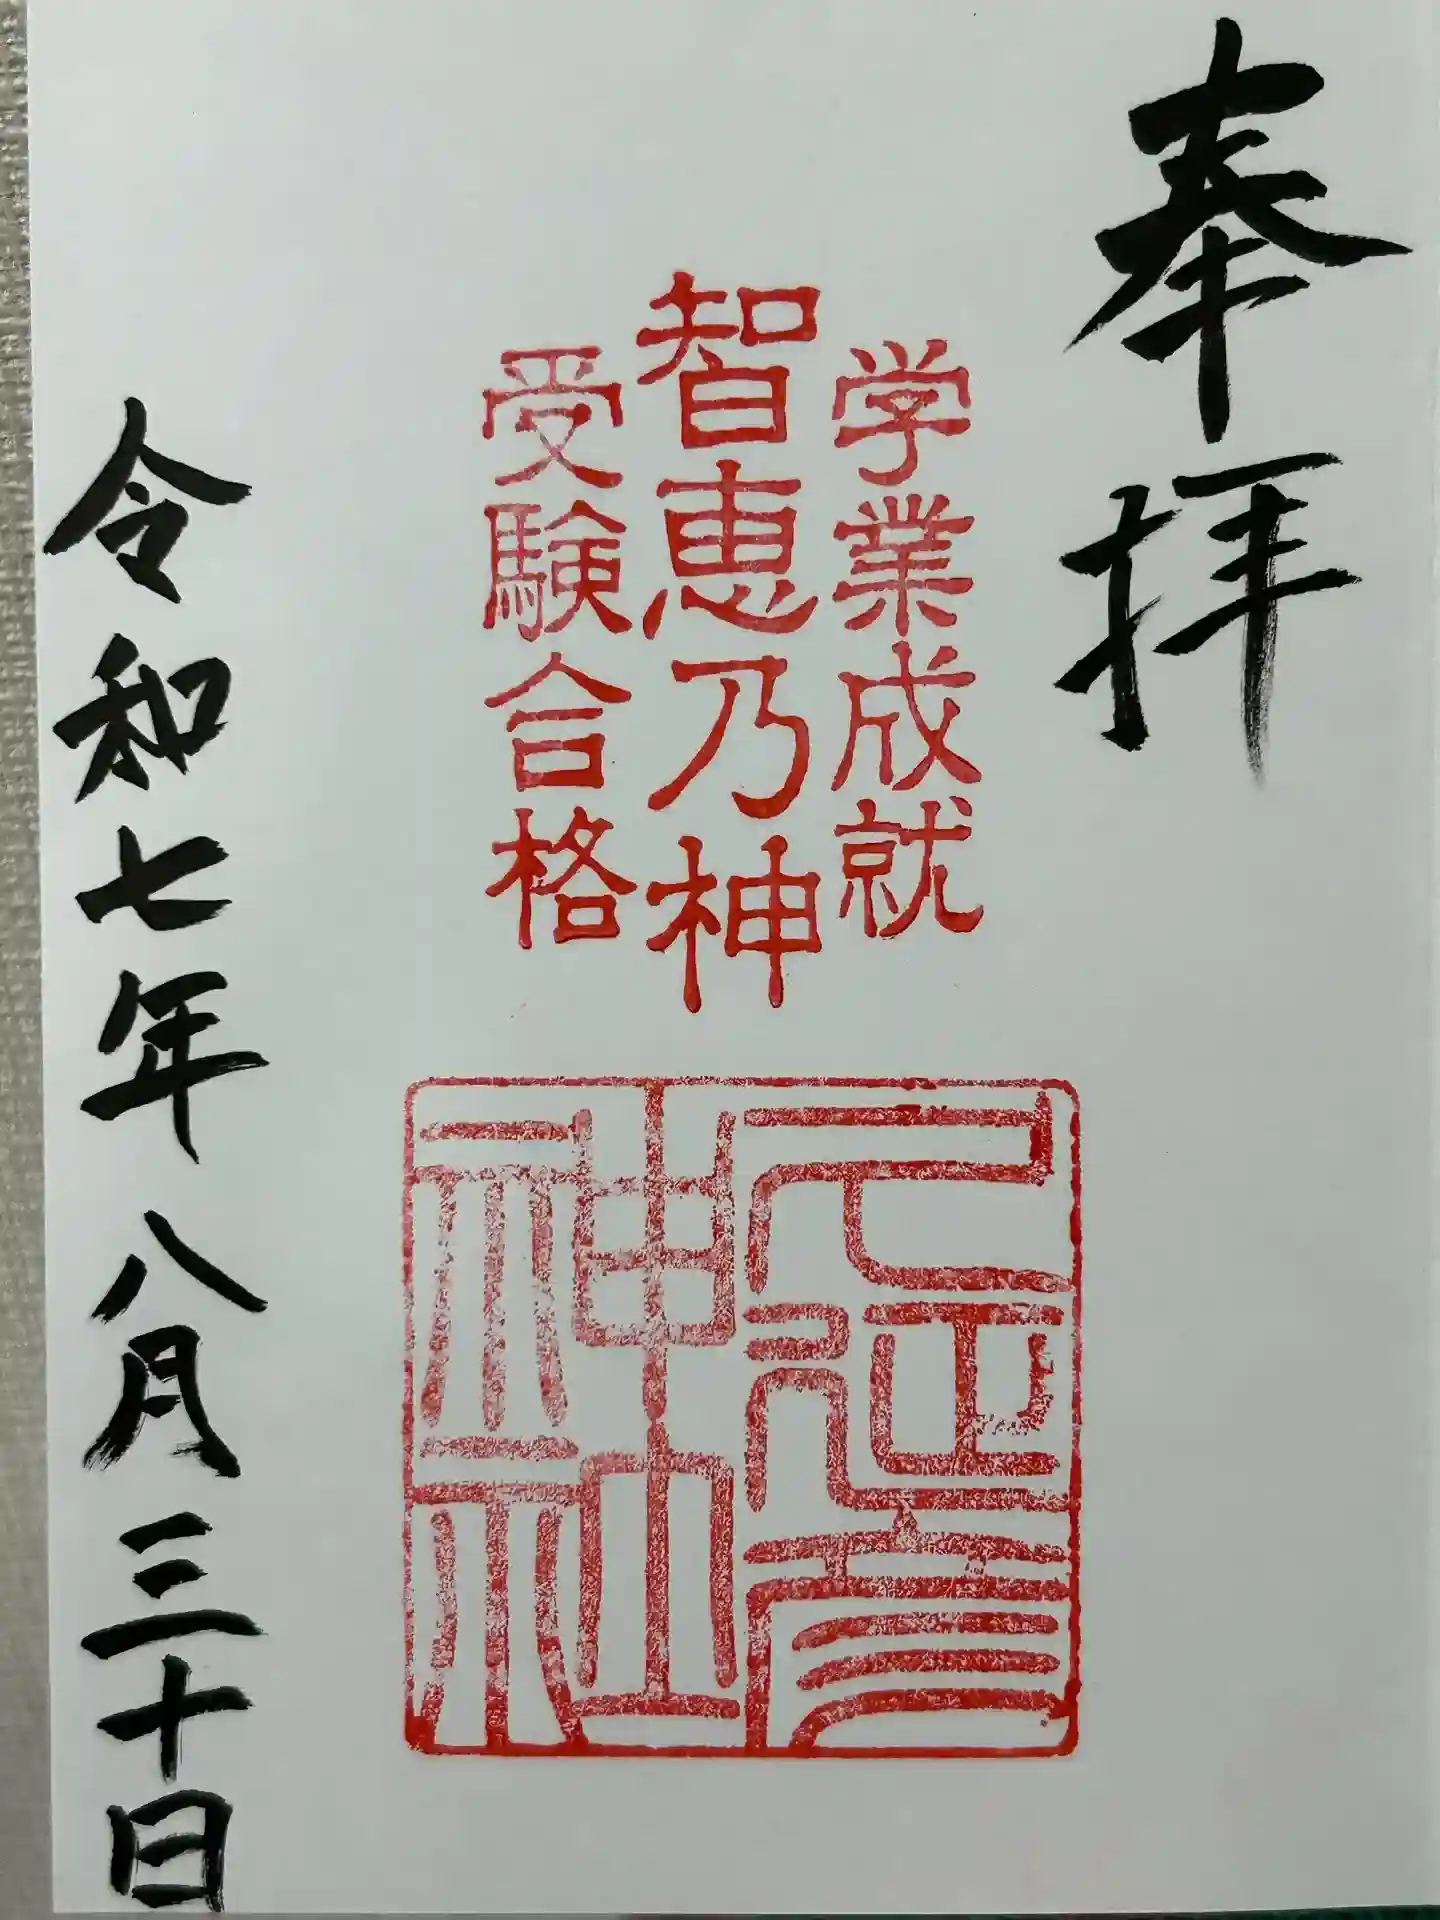 奉拝
学業成就
智恵乃神
受験合格
久延彦
神社
令和七年八月三十日